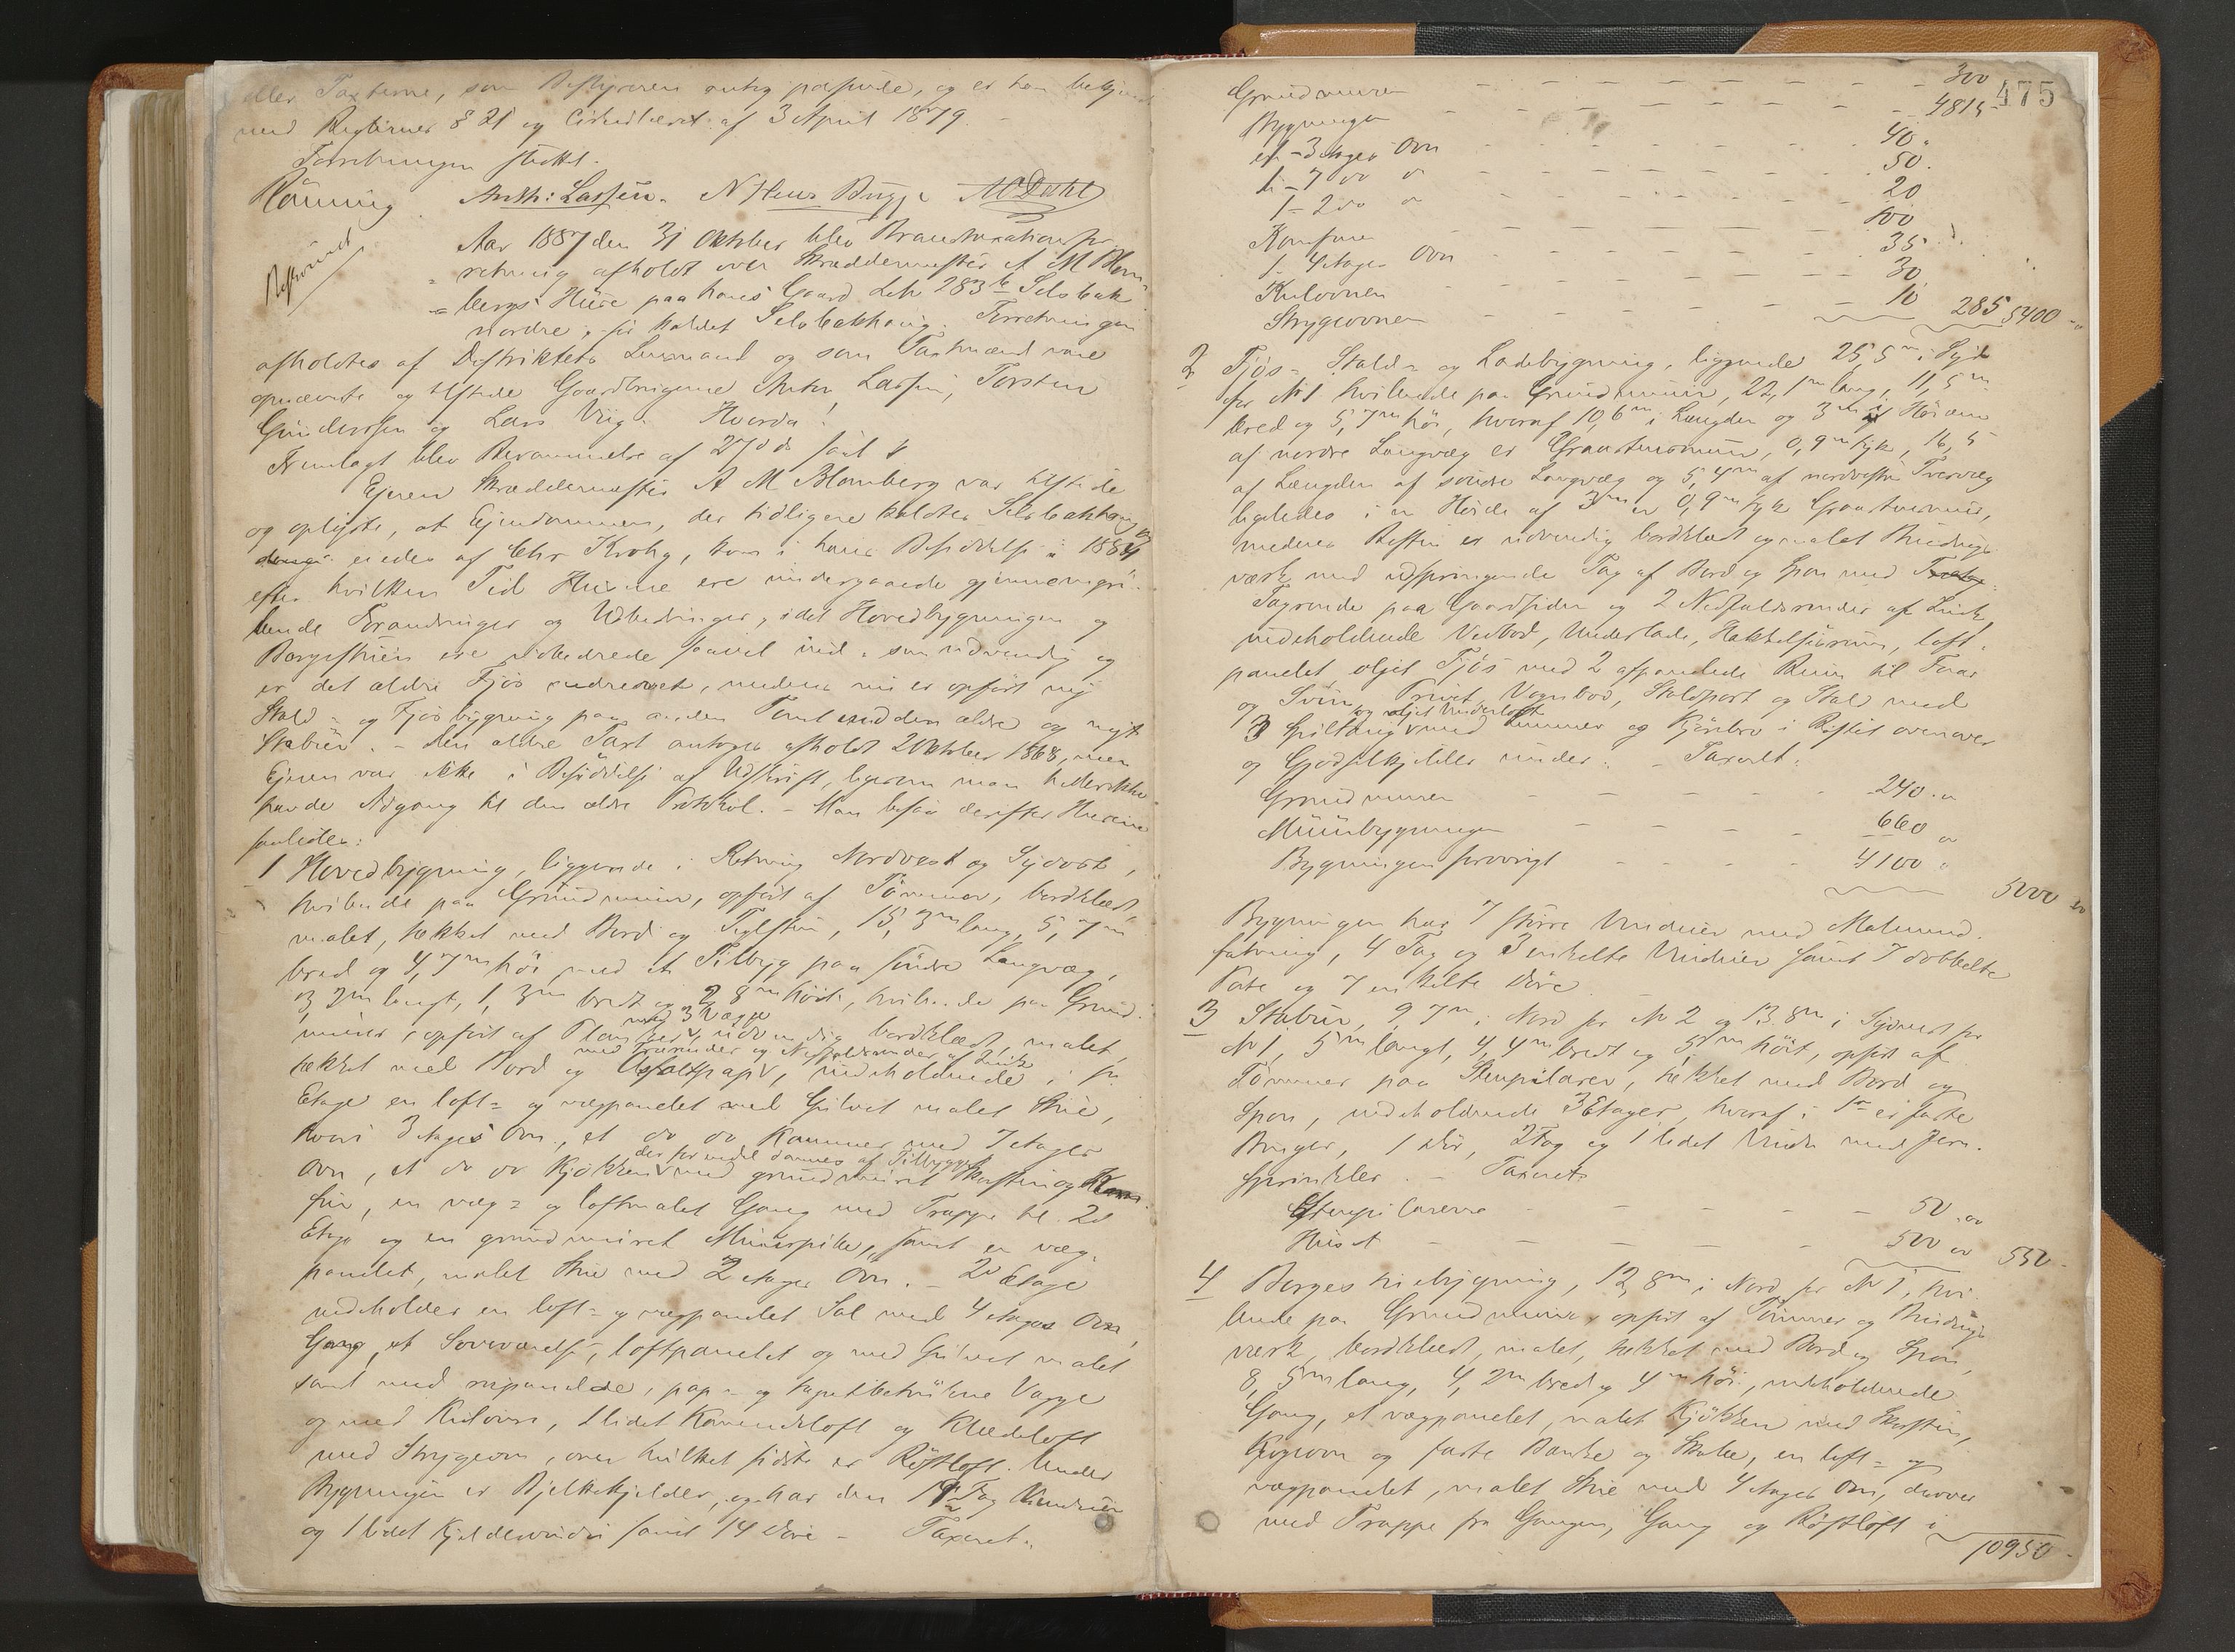 eller Taxterne, som Bestyreren antog passende, og er han bekjendt
med Reglernes § 21 og Cirkulæret af 3 April 1879. -
Forretningen sluttet.
Rönning. Anth: Lassen. N Hen Brygge M Dahl
Beskrevet
Aar 1887 den 31 Oktober blev Brandtaxationsfor-
retning afholdt over Skræddermester A M Blom-
bergs Huse paa hans Gaard Lnr 283 b Selsbak
nordre, för kaldet Selsbakhaug. Forretningen
afholdtes af Distriktets Lensmand og som Taxtmænd vare
opnævnte og tilstede Gaardbrugerne Anton Lassen, Torsten
Gundersen og Lars Viig. Hvorda:
Fremlagt blev Berammelse af 27de ds saal.
Ejeren Skræddermester A M Blomberg var tilstede
og oplyste, at Ejendommen, der tidligere kaldtes Selsbakhaug og
da eiedes af Chr Krohg, kom i hans Besiddelse i 1884
efter hvilken Tid Husene ere undergaaede gjennemgri-
bende Forandringer og Udbedringer, idet Hovedbygningen og
Borgestuen ere udbedrede saavel ind- som udvendig og
er det ældre Fjös nedrevet, medens nu er opfört ny
Stald- og Fjösbygning paa anden Tomt end den ældre og nyt
Stabur. - Den ældre Taxt antoges afholdt 2 Oktober 1868, men
Ejeren var ikke i Besiddelse af Udskrift, ligesom man hellerikke
havde Adgang til den ældre Protokol. - Man besaa derefter Husene
saaledes:
1 Hovedbygning, liggende i Retning Nordvest og Sydost,
hvilende paa Grundmuur, opfört af Tömmer, bordklædt,
malet, tækket med Bord og Teglsten, 15,3m lang, 5,7m
bred og 4,7m höi med et Tilbyg paa söndre Langvæg,
3,7m langt, 1,3m bredt og 2,8m höit, hvilende paa Grund-
muur, opfört af Planker med 3 Vægge, udvendig bordklædt, malet,
tækket med Bord og Asfaltpap, med Trærender og Nedfaldsrender af Zink, indeholdende i 1ste
Etage en loft- og vægpanelet med Gulvet malet Stue,
hvori 3 etages Ovn, et do do Kammer med 7 etages
Ovn, et do do Kjökken der for endel dannes af Tilbygget med grundmuret Skorsten og Kom-
fur, en væg- og loftmalet Gang med Trappe til 2den
Etage og en grundmuret Muurpibe, samt en væg-
panelet, malet Stue med 2 etages Ovn. - 2den Etage
indeholder en loft- og vægpanelet Sal med 4 etages Ovn,
Gang, et Soveværelse, loftpanelet og med Gulvet malet
samt med upanelde, pap- og tapetbetrukne Vægge
og med Kulovn, 1 lidet Kammersloft og Klædeloft
med Strygeovn, over hvilket sidste er Röstloft. Under
Bygningen er Bjelkekjelder, og har den 19 Fag Vinduer
og 1 lidet Kjeldervindu samt 14 Döre - Taxeret.
475
Grundmuren - - - 300
Bygningen - - - 4815
en - 3 etages Ovn - - - 40 "
1 - 7 do do - - - 50.
1 - 2 do do - - - 20
Komfuren - - - 100
1 - 4 etages Ovn - - - 35
Kulovnen - - - 30
Strygeovnen - - - 10 285 5400 -
2 Fjös- Stald- og Ladebygning, liggende 25,5m i Syd
for No 1 hvilende paa Grundmuur, 22,1m lang, 11,5m
bred og 5,7m höi, hvoraf 10,6m i Længden og 3m i Höiden
af nordre Langvæg er Graastensmuur, 0,9m tyk, 16,5
af Længden af söndre Langvæg og 5,4m af nordvestre Tvervæg
ligeledes i en Höide af 3m er 0,9m tyk Graastensmuur,
medens Resten er udvendig bordklædt og malet Bindings-
værk med udspringende Tag af Bord og Spon med
Tagrende paa Gaardsiden og 2 Nedfaldsrender af Zink,
indeholdende Vedbod, Underlade, Hakkelsesrum, loft-
panelet, oljet Fjös med 2 afpanelede Rum til Faar
og Sviin, Privet, Vognbod, Staldport og Stal med
3 Spiltaug og oljet Underloft med Lemmer og Kjörebro i Röstet ovenover
og Gjödselkjelder under. - Taxeret:
Grundmuren - - - 240 "
Muurbygningen - - - 660 "
Bygningen forövrigt - - - 4100 "
5000 "
Bygningen har 7 större Vinduer med Malmind-
fatning, 4 Fag og 3 enkelte Vinduer samt 7 dobbelte
Porte og 7 enkelte Döre.
3 Stabur, 9,7m i Nord for No 2 og 13,8m i Sydvest for
No 1, 5m langt, 4,4m bredt og 5m höit, opfört af
Tömmer paa Stenpilarer, tækket med Bord og
Spon, indeholdende 3 Etager, hvoraf i 1ste er faste
Binger, 1 Dör, 2 Fag og 1 lidet Vindu med Jern-
sprinkler. - Taxeret:
Stenpilarerne - - - 50 "
Huset - - - 500 " 550 -
4 Borgestuebygning, 12,8m i Nord for No 1, hvi-
lende paa Grundmuur, opfört af Tömmer og Bindings-
værk, bordklædt, malet, tækket med Bord og Spon,
8,5m lang, 4,2m bred og 4m höi, indeholdende
Gang, et vægpanelet, malet Kjökken med Skorsten,
Kogeovn og faste Bænke og Skabe, en loft- og
vægpanelet, malet Stue med 4 etages Ovn, derover
med Trappe fra Gangen, Gang og Röstloft i
10950 -